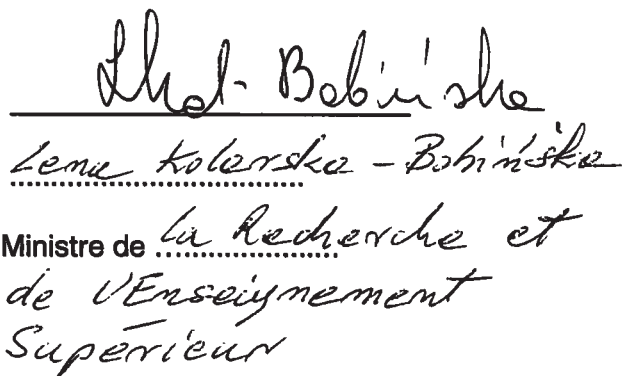 Lkol-Bobińska
Lena Kolarska-Bobińska
Ministre de la Recherche et
de l'Enseignement
Supérieur